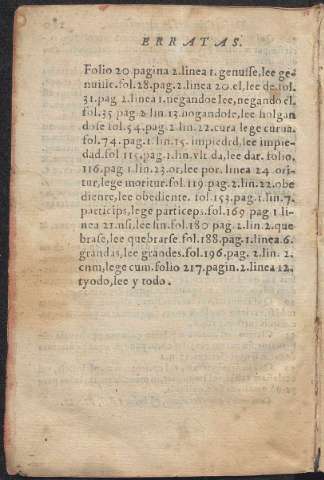 ERRATAS.
Folio 20.pagina 2.linea 1.genuisse,lee ge-
nuisse.fol.28.pag.2.linea 20.el,lee de.fol.
31.pag 2.linea 1.negandoe lee,negando el.
fol.35 pag 2.lin 13.nogandose,lee holgan
dose fol.54.pag.2 lin 22.cura lege curua.
fol.74.pag.1.lin.15. impiedrd,lee impie-
dad.fol 115.pag.1.lin.vlt da,lee dar. folio.
116.pag 1 lin.23.or,lee por. linea 24 ori
tur,lege moritur.fol 119 pag.2.lin.22.obe
dienre,lee obediente. fol.153.pag.1.lin.7.
paeticips,lege particeps.fol.169 pag 1 li-
nea 21.nsi,lee sin.fol.180 pag 2.lin 2.que
brase,lee quebrarse fol.188.pag.1.linea.6.
grandas,lee grandes.fol.196.pag. 2.lin. 2.
cnm,lege cum.folio 217.pagin.2.linea 12.
tyodo,lee y todo.